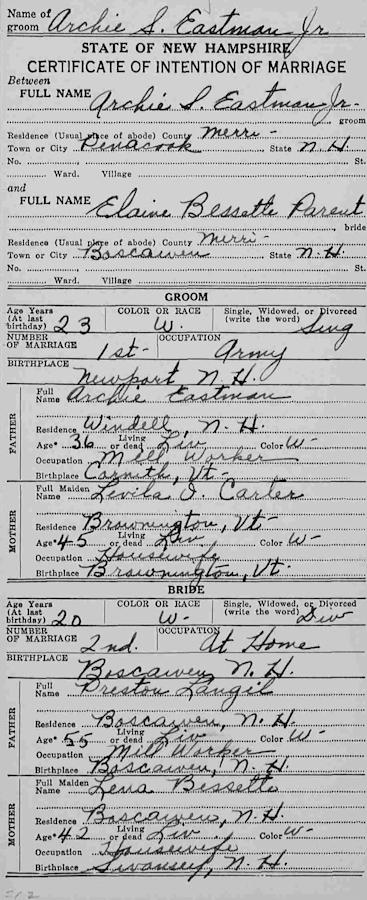 Name of groom Archie S. Eastman Jr
STATE OF NEW HAMPSHIRE
CERTIFICATE OF INTENTION OF MARRIAGE
Between
FULL NAME Archie S. Eastman Jr.
groom
Residence (Usual place of abode) County Merri-
Town or City Penacook State N. H.
No. St.
Ward. Village
and
FULL NAME Elaine Bessette Parent
bride
Residence (Usual place of abode) County Merri-
Town or City Boscawen State N. H.
No. St.
Ward. Village
GROOM
Age Years (At last birthday) 23 COLOR OR RACE W. Single, Widowed, or Divorced (write the word) Sing
NUMBER OF MARRIAGE 1st- OCCUPATION Army
BIRTHPLACE Newport N. H.
FATHER
Full Name Archie Eastman
Residence Windell, N. H.
Age* 36 Living or dead Liv Color W-
Occupation Mill Worker
Birthplace Vt-
MOTHER
Full Maiden Name Levila I. Carter
Residence Brownington, Vt-
Age* 45 Living or dead Liv Color W-
Occupation Housewife
Birthplace Brownington, Vt.
BRIDE
Age Years (At last birthday) 20 COLOR OR RACE W- Single, Widowed, or Divorced (write the word) Div
NUMBER OF MARRIAGE 2nd. OCCUPATION At Home
BIRTHPLACE Boscawen N. H.
FATHER
Full Name Preston Langil
Residence Boscawen, N. H.
Age* 55 Living or dead Liv Color W-
Occupation Mill Worker
Birthplace Boscawen, N. H.
MOTHER
Full Maiden Name Lena Bessette
Residence Boscawen, N. H.
Age* 42 Living or dead Liv Color W-
Occupation Housewife
Birthplace Swansey, N. H.